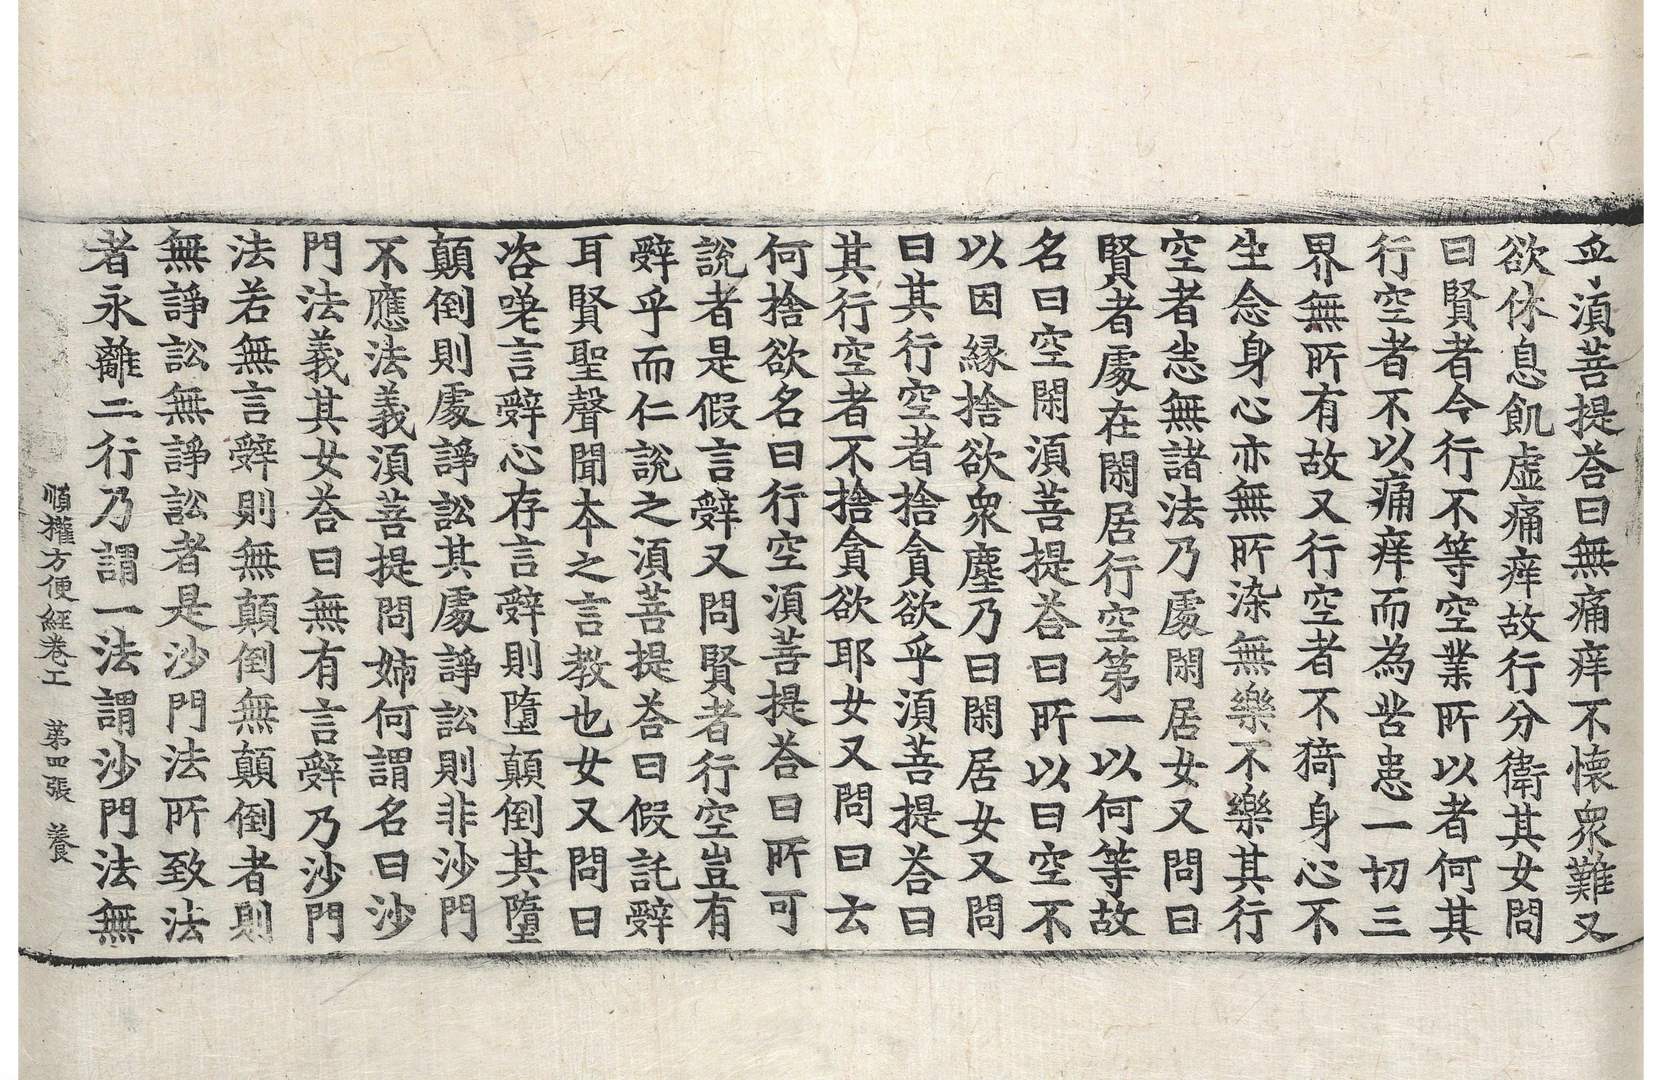 血須菩提荅曰無痛痒不懷衆難又
欲休息飢虛痛痒故行分衛其女問
曰賢者今行不等空業所以者何其
行空者不以痛痒而為苦患一切三
界無所有故又行空者不猗身心不
生念身心亦無所染無樂不樂其行
空者恚無諸法乃處閑居女又問曰
賢者處在閑居行空第一以何等故
名曰空閑須菩提荅曰所以曰空不
以因緣捨欲衆塵乃曰閑居女又問
曰其行空者捨貪欲乎須菩提荅曰
其行空者不捨貪欲耶女又問曰云
何捨欲名曰行空須菩提荅曰所可
說者是假言辤又問賢者行空豈有
辤乎而仁說之須菩提荅曰假託辤
耳賢聖聲聞本之言教也女又問曰
咨嗟言辤心存言辤則墮顛倒其墮
顛倒則處諍訟其處諍訟則非沙門
不應法義須菩提問姊何謂名曰沙
門法義其女荅曰無有言辤乃沙門
法若無言辤則無顛倒無顛倒者則
無諍訟無諍訟者是沙門法所致法
者永離二行乃謂一法謂沙門法無
順權方便經卷上 第四張 養